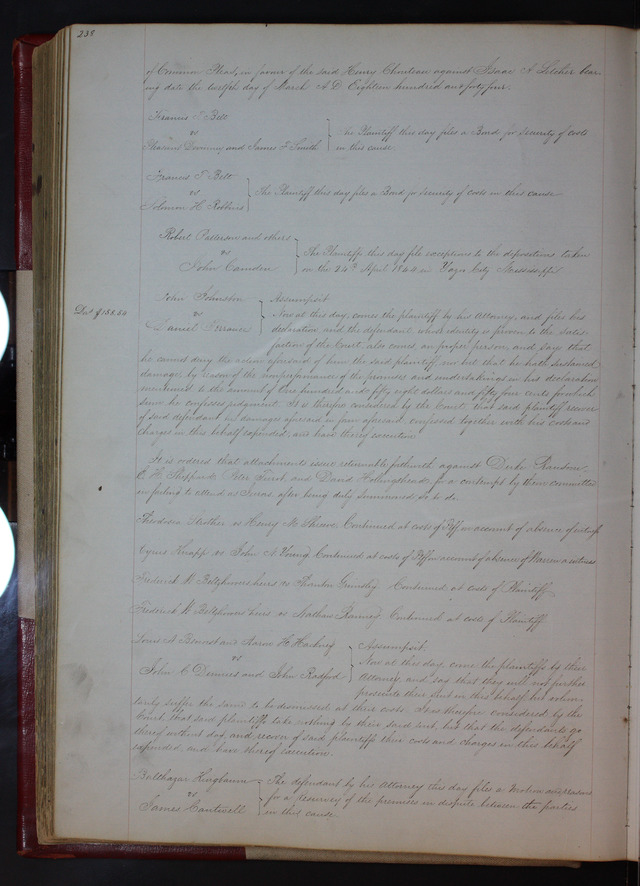 238
of Common Pleas, in favour of the said Henry Chouteau against Isaac A Letcher bear
ing date the twelfth day of March A.D. Eighteen hundred and forty four.
Francis T Belt
vs
and James F Smith
The Plaintiff this day files a Bond for security of costs
in this cause
Francis T. Belt
vs
Solomon H. Robbins
The Plaintiff this day files a Bond for security of costs in this cause
Robert Patterson and others
vs
John Camden
The Plaintiffs this day file exceptions to the depositions taken
on the 24th April 1844 in Yazoo City Mississippi
John Johnston
vs
Daniel
Debt $158.54
Assumpsit
Now at this day, comes the plaintiff by his Attorney, and files his
declaration and the defendant whose identity is proven to the satis-
faction of the Court, also comes, in proper person, and says that
he cannot deny the action aforesaid of him the said plaintiff nor but that he hath sustained
damage, by reason of the nonperformance of the promises and undertakings in his declaration
mentioned to the amount of One hundred and fifty eight dollars and fifty four cents for which
sum he confesses judgment. It is therefore considered by the Court that said plaintiff recover
of said defendant his damages aforesaid in form aforesaid confessed together with his costs and
charges in this behalf expended, and have thereof execution
It is ordered that attachments issue returnable forthwith against Duke Ransom,
E. H. Shepperd, Peter and David Hollingshead, for a contempt by them committed
in failing to attend as Jurors, after being duly summoned so to do
Theodosia Strother vs Henry M Shreve. Continued at costs of Plff on account of absence of witness
Cyrus Knapp vs John A Young Continued at costs of Plff on account of absence of Warren a witness
Frederick W heirs vs Thornton Grimsley Continued at costs of Plaintiff
Frederick W heirs vs Nathan Ranney Continued at costs of Plaintiff
Louis A Benoist and Aaron H. Hackney
vs
John C Dennies and John Radford
Assumpsit.
Now at this day come the plaintiffs by their
Attorney, and say that they will not further
prosecute their suit in this behalf but volun-
tarily suffer the same to be dismissed at their costs. It is therefore considered by the
Court, that said plaintiffs take nothing by their said suit, but that the defendants go
thereof without day, and recover of said plaintiffs their costs and charges in this behalf
expended, and have thereof execution.
Balthazar
vs
James Cantwell
The defendant by his Attorney this day files a Motion and reasons
for a Resurvey of the premises in dispute between the parties
in this cause